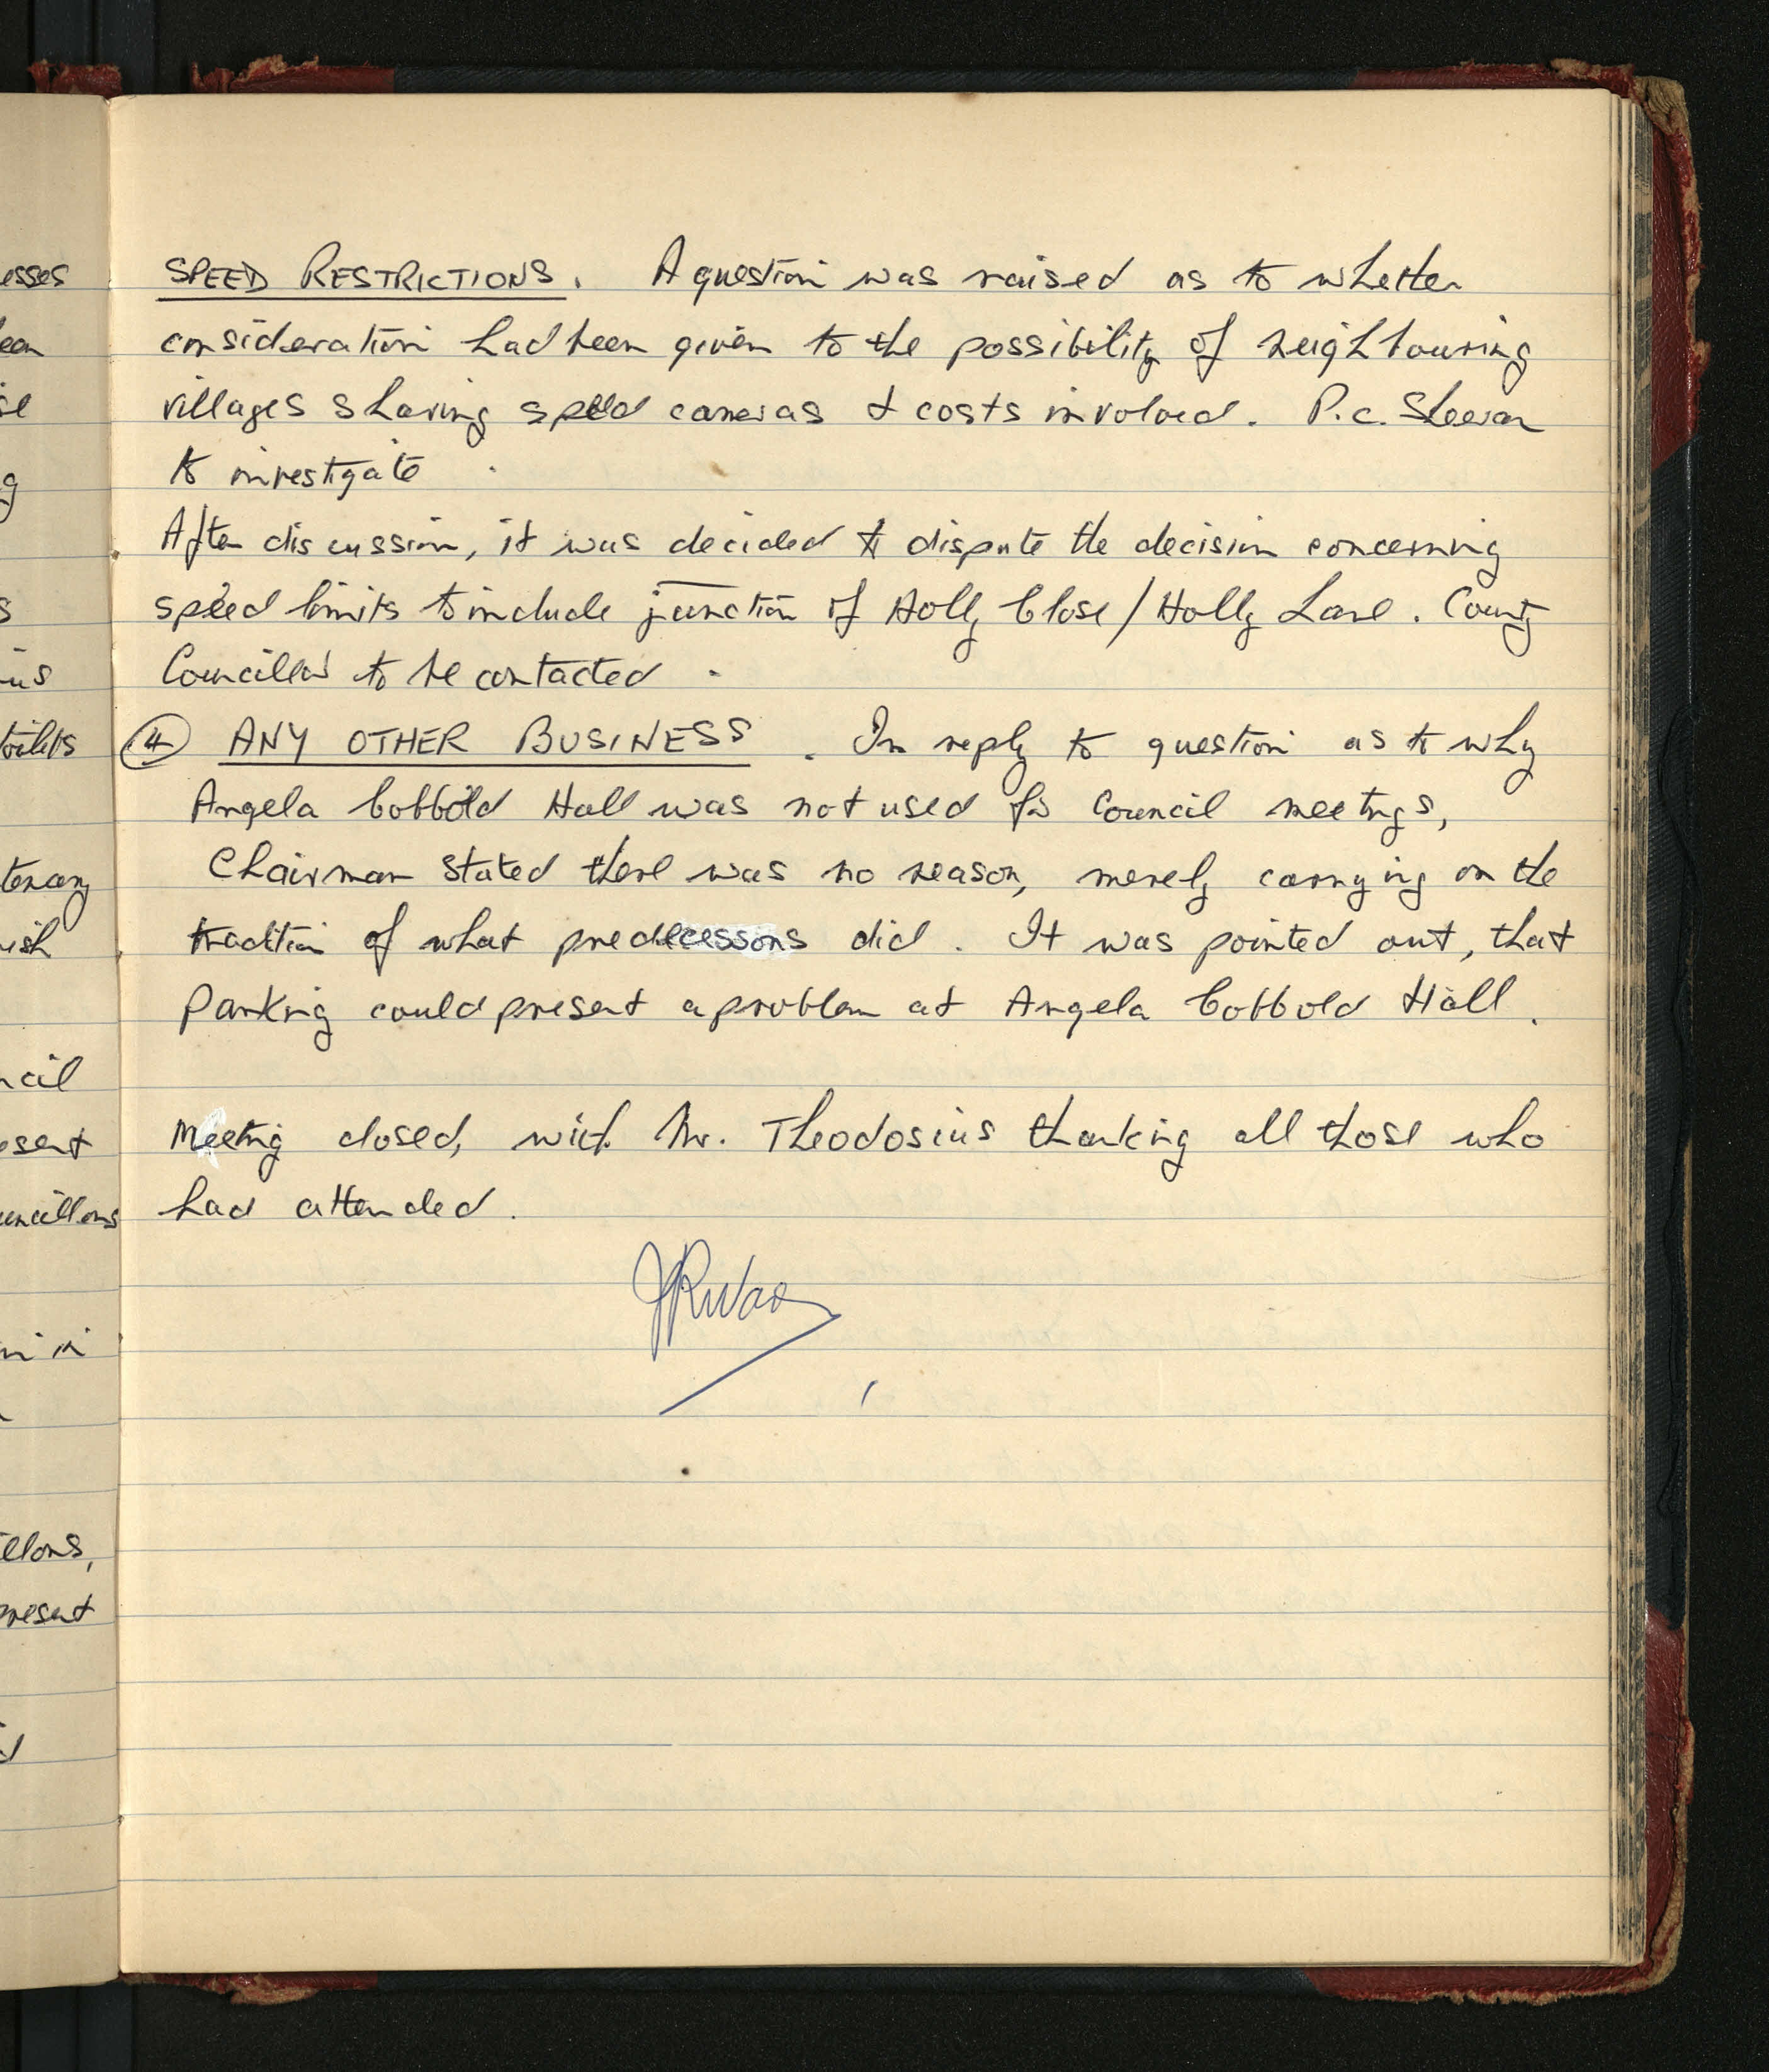 esses
een
g
s
us
tenary
ish
cil
esent
uncillors
illors,
resent
SPEED RESTRICTIONS. A question was raised as to whether
consideration had been given to the possibility of neighbouring
villages sharing speed cameras & costs involved. P.C.
to investigate.
After discussion, it was decided to dispute the decision concerning
speed limits to include junction of Holly Close/Holly Lane. County
Councillor to be contacted.
④ ANY OTHER BUSINESS. In reply to question as to why
Angela Cobbold Hall was not used for Council meetings,
Chairman stated there was no reason, merely carrying on the
tradition of what predecessors did. It was pointed out, that
parking could present a problem at Angela Cobbold Hall.
Meeting closed, with Mr. Theodosius thanking all those who
had attended.